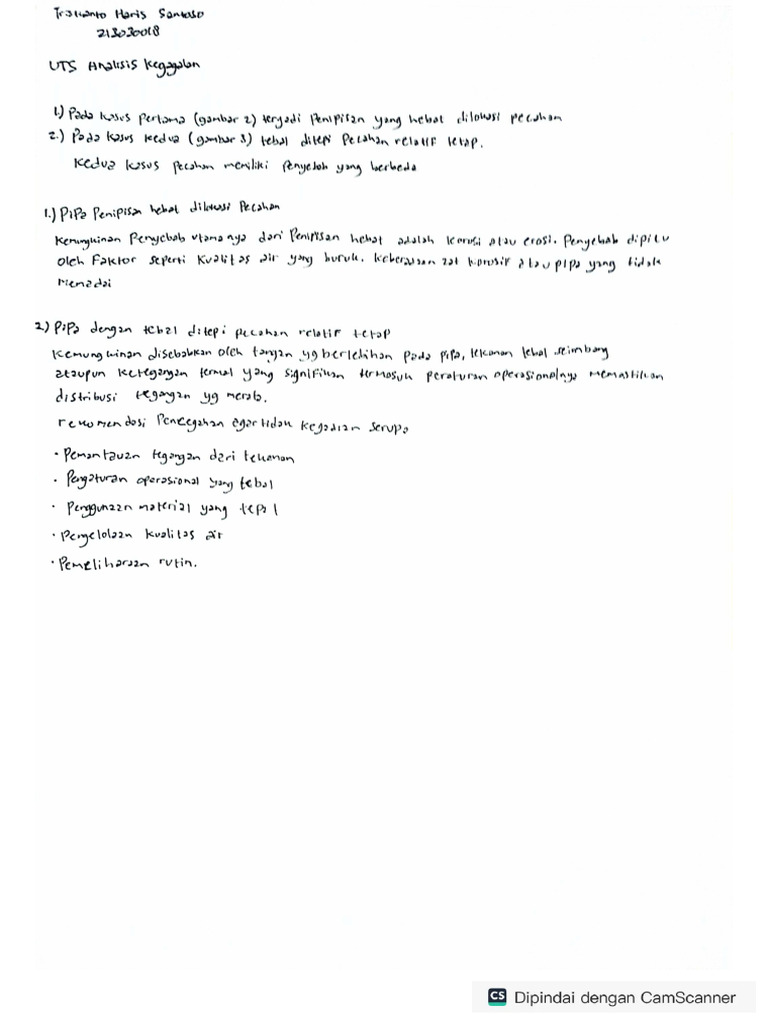 Haris Santoso
213030018
UTS Analisis Kegagalan
1.) Pada kasus pertama (gambar 2) tergadi Penipisan yang hebat dilokasi pecahan
2.) Pada kasus kedua (gambar 3) tebal ditepi Pecahan relatif tetap.
Kedua kasus pecahan memiliki Penyebab yang berbeda
1.) Pipa Penipisan hebat dilokasi Pecahan
Kemungkinan Penyebab utamanya dari Penipisan hebat adalah korosi atau erosi. Penyebab dipicu
oleh Faktor seperti Kualitas air yang buruk. Keberadaan zat korosif atau pipa yang tidak
menadai
2.) Pipa dengan tebal ditepi pecahan relatif tetap
Kemungkinan disebabkan oleh yg berlebihan pada pipa, tekanan seimbang
ataupun ketegangan termal yang signifikan termasuk peraturan operasionalnya memastikan
distribusi tegangan yg merata.
rekomendasi Pencegahan agar tidak serupa
· Pemantauan tegangan dari tekanan
· Pengaturan operasional yang tebal
· Penggunaan material yang
· Pengelolaan kualitas air
· Pemeliharaan rutin.
CS Dipindai dengan CamScanner